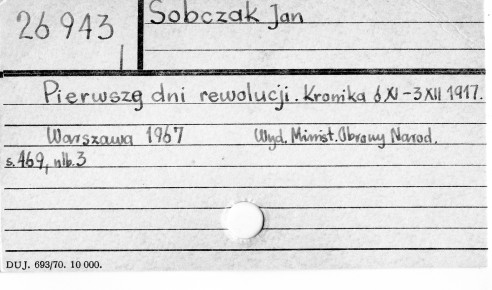 26 943
Sobczak Jan
Pierwszę dni rewolucji. Kronika 6 XI - 3 XII 1917.
Warszawa 1967 Wyd. Minist. Obrony Narod.
s. 469, nlb. 3
DUJ. 693/70. 10 000.